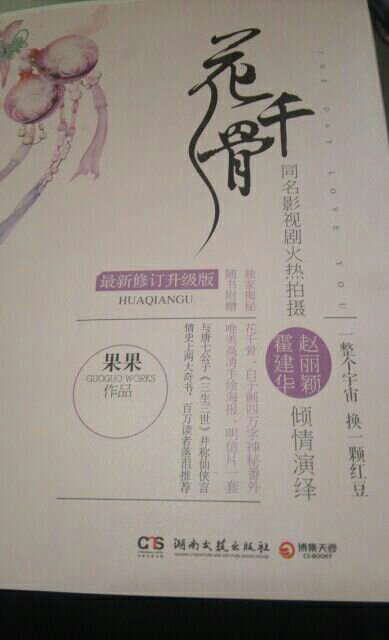 花千骨
THE DAY I LOVE YOU
同名影视剧火热拍摄
最新修订升级版
HUAQIANGU
独家揭秘
随书附赠
花千骨、白子画四万字神秘番外
唯美高清手绘海报、明信片一套
与唐七公子《三生三世》并称仙侠言
情史上两大奇书，百万读者落泪推荐
果果
GUOGUO WORKS
作品
一整个宇宙 换一颗红豆
赵丽颖
霍建华
倾情演绎
湖南文艺出版社
HUNAN LITERATURE AND ART PUBLISHING HOUSE
博集天卷
CS-BOOKY